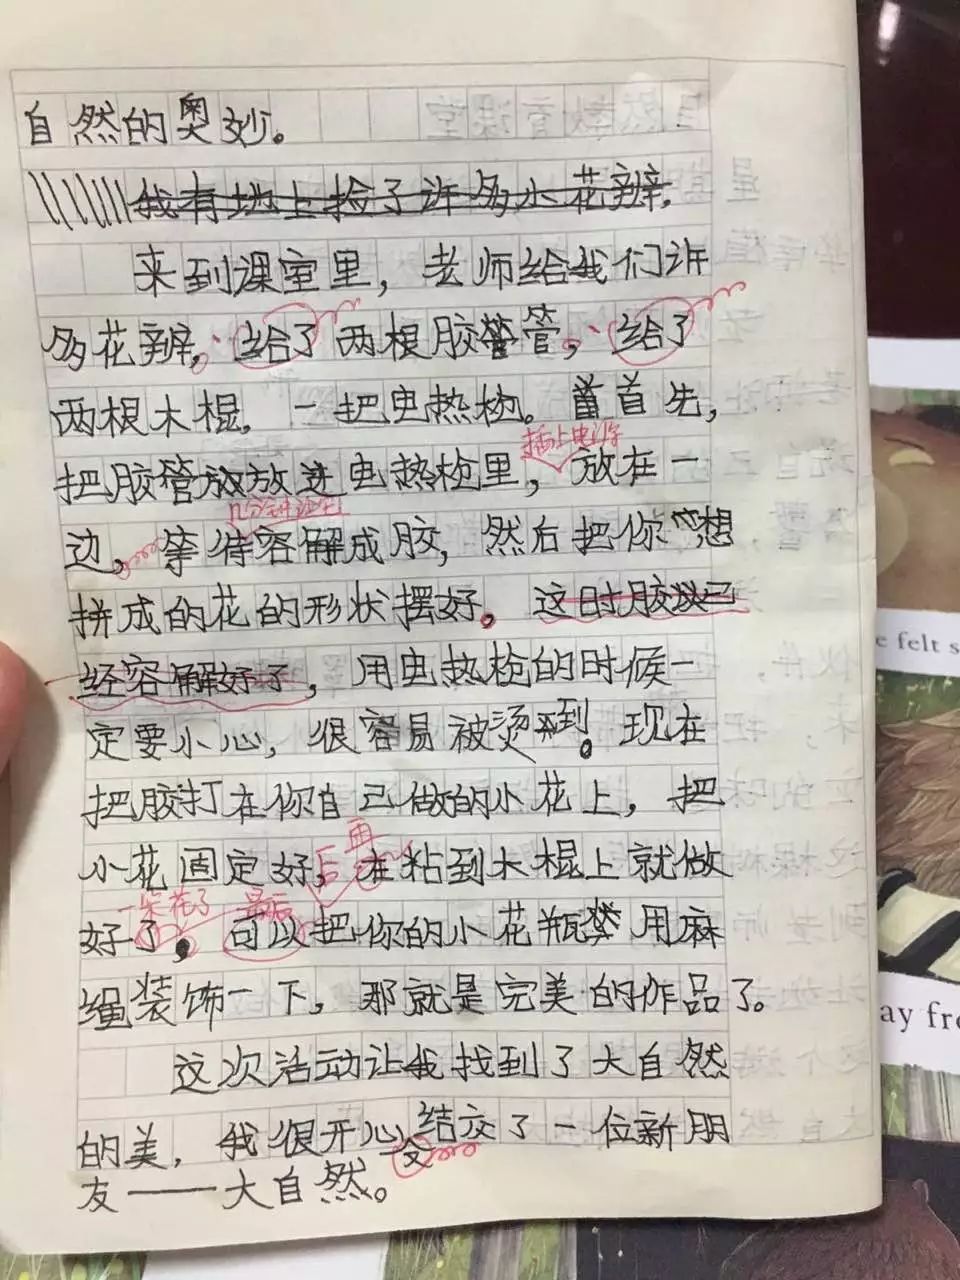 自然的奥妙。
我有地上捡了许多小花辨。
来到课室里，老师给我们许
多花辨，给了两根胶管，给了
两根木棍，一把虫热枪。首先，
插上电
把胶管放进虫热枪里，放在一
几分钟
边，等待容解成胶，然后把你想
拼成的花的形状摆好。这时胶以已
经容解好了，用虫热枪的时候一
定要小心，很容易被烫到。现在
把胶打在你自己做的小花上，把
后再
小花固定好，在粘到木棍上就做
一朵花了 最后
好了，可以把你的小花瓶 用麻
绳装饰一下，那就是完美的作品了。
这次活动让我找到了大自然
的美，我很开心交结交了一位新朋
友——大自然。
e felt s
ay fro